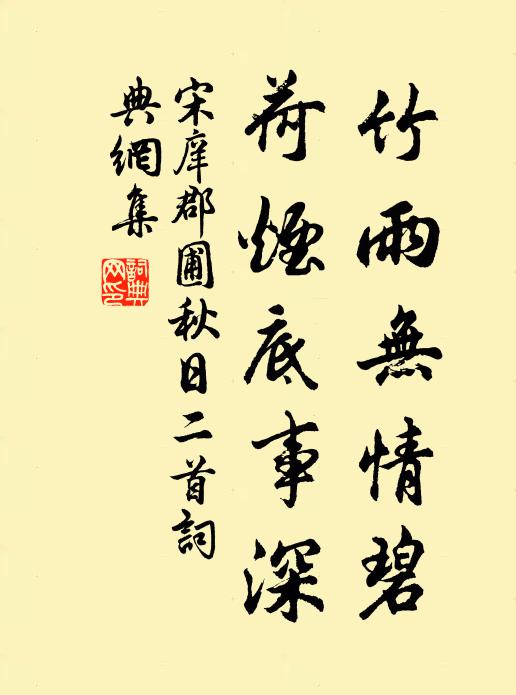 竹雨無情碧
荷煙底事深
宋庠郡圃秋日二首詞
典網集
詞典
网印